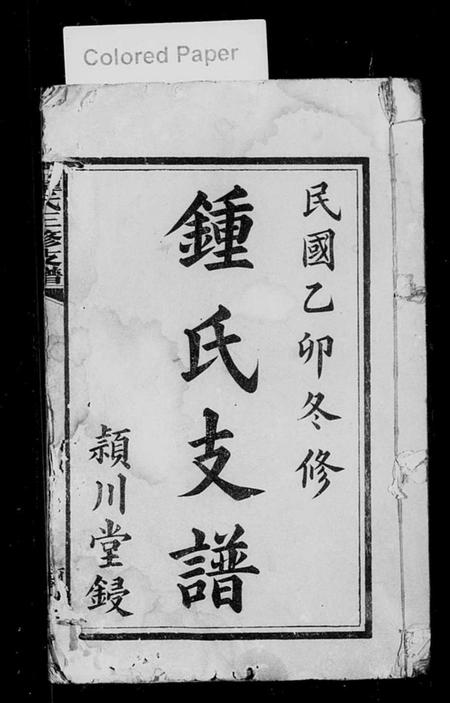 Colored Paper
民國乙卯冬修
鍾氏支譜
頴川堂鋟
氏三修支譜